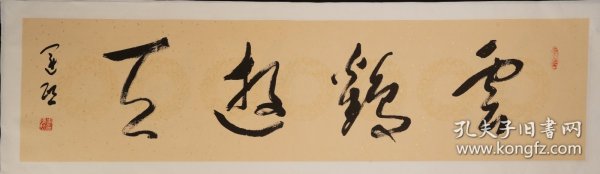 雲鶴遊天
孔夫子旧书网
www.kongfz.com